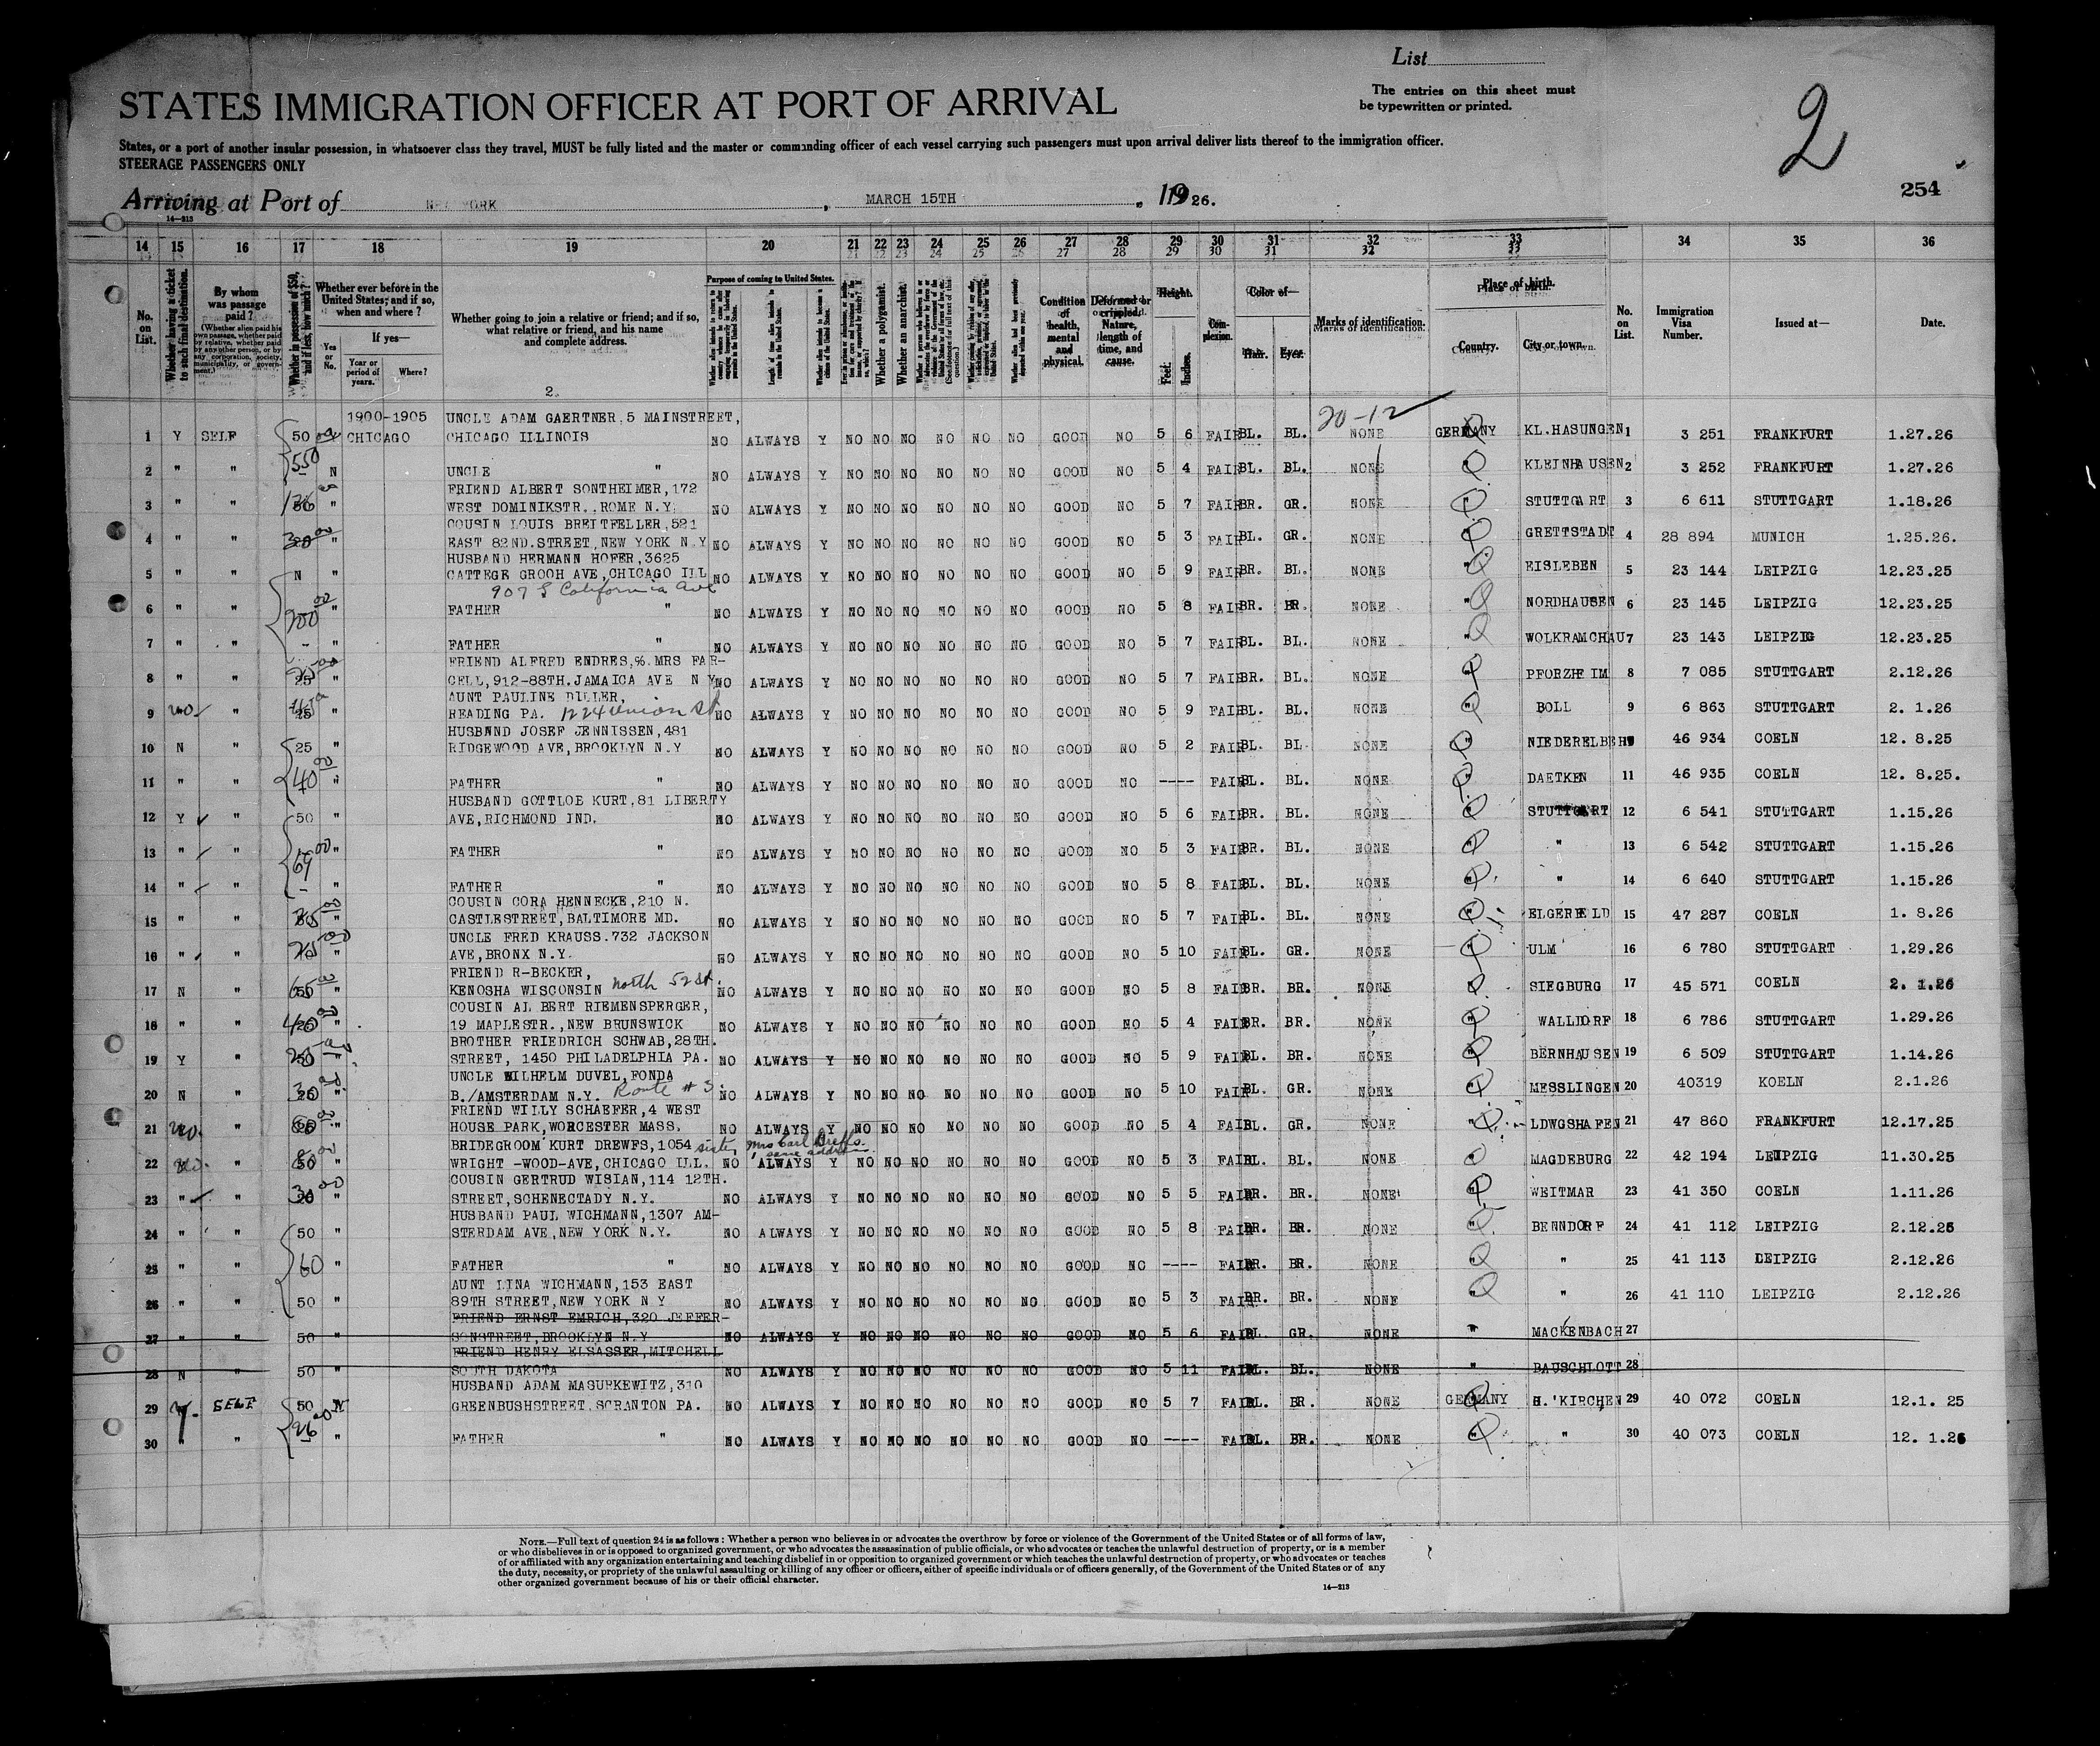 List
The entries on this sheet must
be typewritten or printed.
STATES IMMIGRATION OFFICER AT PORT OF ARRIVAL
States, or a port of another insular possession, in whatsoever class they travel, MUST be fully listed and the master or commanding officer of each vessel carrying such passengers must upon arrival deliver lists thereof to the immigration officer.
STEERAGE PASSENGERS ONLY
2
254
Arriving at Port of NEW YORK, MARCH 15TH, 1926.
14—213
14 15 16 17 18 19 20 21 22 23 24 25 26 27 28 29 30 31 32 33 34 35 36
No. on List.
Whether having a ticket to such final destination.
By whom was passage paid?
Whether in possession of $50, and if less, how much?
Whether ever before in the United States; and if so, when and where?
Yes or No.
If yes—
Year or period of years.
Where?
Whether going to join a relative or friend; and if so, what relative or friend, and his name and complete address.
Purpose of coming to United States.
Whether a polygamist.
Whether an anarchist.
Condition of health, mental and physical.
Deformed or crippled. Nature, length of time, and cause.
Height.
Feet. Inches.
Complexion.
Color of—
Hair. Eyes.
Marks of identification.
Place of birth.
Country. City or town.
No. on List.
Immigration Visa Number.
Issued at—
Date.
2.
20-12
1900-1905 UNCLE ADAM GAERTNER, 5 MAINSTREET,
1 Y SELF 50 CHICAGO CHICAGO ILLINOIS NO ALWAYS Y NO NO NO NO NO NO GOOD NO 5 6 FAIR BL. BL. NONE GERMANY KL.HASUNGEN 1 3 251 FRANKFURT 1.27.26
2 " " 550 N UNCLE " NO ALWAYS Y NO NO NO NO NO NO GOOD NO 5 4 FAIR BL. BL. NONE " KLEINHAUSEN 2 3 252 FRANKFURT 1.27.26
FRIEND ALBERT SONTHEIMER, 172
3 " " " WEST DOMINIKSTR., ROME N.Y. NO ALWAYS Y NO NO NO NO NO NO GOOD NO 5 7 FAIR BR. GR. NONE " STUTTGART 3 6 611 STUTTGART 1.18.26
COUSIN LOUIS BREITFELLER, 521
4 " " " EAST 82ND. STREET, NEW YORK N.Y NO ALWAYS Y NO NO NO NO NO NO GOOD NO 5 3 FAIR BL. GR. NONE " GRETTSTADT 4 28 894 MUNICH 1.25.26.
HUSBAND HERMANN HOFER, 3625
5 " " N " CATTEGE GROOH AVE, CHICAGO ILL NO ALWAYS Y NO NO NO NO NO NO GOOD NO 5 9 FAIR BR. BL. NONE " EISLEBEN 5 23 144 LEIPZIG 12.23.25
907 S California Ave
6 " " 200 " FATHER " NO ALWAYS Y NO NO NO NO NO NO GOOD NO 5 8 FAIR BR. BR. NONE " NORDHAUSEN 6 23 145 LEIPZIG 12.23.25
7 " " - " FATHER " NO ALWAYS Y NO NO NO NO NO NO GOOD NO 5 7 FAIR BL. BL. NONE " WOLKRAMCHAU 7 23 143 LEIPZIG 12.23.25
FRIEND ALFRED ENDRES, %. MRS FAR-
8 " " 25 " CELL, 912-88TH. JAMAICA AVE N Y NO ALWAYS Y NO NO NO NO NO NO GOOD NO 5 7 FAIR BR. BL. NONE " PFORZHEIM 8 7 085 STUTTGART 2.12.26
AUNT PAULINE DILLER,
9 no " 25 " READING PA. 1224 Union St NO ALWAYS Y NO NO NO NO NO NO GOOD NO 5 9 FAIR BL. BL. NONE " BOLL 9 6 863 STUTTGART 2. 1.26
HUSBNND JOSEF JENNISSEN, 481
10 N " 25 " RIDGEWOOD AVE, BROOKLYN N.Y NO ALWAYS Y NO NO NO NO NO NO GOOD NO 5 2 FAIR BL. BL NONE " NIEDERELBEH 10 46 934 COELN 12. 8.25
11 " " 40 " FATHER " NO ALWAYS Y NO NO NO NO NO NO GOOD NO ---- FAIR BL. BL. NONE " DAETKEN 11 46 935 COELN 12. 8.25.
HUSBAND GOTTLOB KURT, 81 LIBERTY
12 Y " 50 " AVE, RICHMOND IND. NO ALWAYS Y NO NO NO NO NO NO GOOD NO 5 6 FAIR BR. BL. NONE " STUTTGART 12 6 541 STUTTGART 1.15.26
13 " " " FATHER " NO ALWAYS Y NO NO NO NO NO NO GOOD NO 5 3 FAIR BR. BL. NONE " " 13 6 542 STUTTGART 1.15.26
14 " " - " FATHER " NO ALWAYS Y NO NO NO NO NO NO GOOD NO 5 8 FAIR BL. BL. NONE " " 14 6 640 STUTTGART 1.15.26
COUSIN CORA HENNECKE, 210 N.
15 " " " CASTLESTREET, BALTIMORE MD. NO ALWAYS Y NO NO NO NO NO NO GOOD NO 5 7 FAIR BL. BL. NONE " ELGERFELD 15 47 287 COELN 1. 8.26
UNCLE FRED KRAUSS. 732 JACKSON
16 " " " AVE, BRONX N.Y. NO ALWAYS Y NO NO NO NO NO NO GOOD NO 5 10 FAIR BL. GR. NONE " ULM 16 6 780 STUTTGART 1.29.26
FRIEND R-BECKER,
17 N " " KENOSHA WISCONSIN North 52 St. NO ALWAYS Y NO NO NO NO NO NO GOOD NO 5 8 FAIR BR. BR. NONE " SIEGBURG 17 45 571 COELN 2. 1.26
COUSIN ALBERT RIEMENSPERGER,
18 " " " 19 MAPLESTR., NEW BRUNSWICK NO ALWAYS Y NO NO NO NO NO NO GOOD NO 5 4 FAIR BR. BR. NONE " WALLDORF 18 6 786 STUTTGART 1.29.26
BROTHER FRIEDRICH SCHWAB, 28TH.
19 Y " 50 " STREET, 1450 PHILADELPHIA PA. NO ALWAYS Y NO NO NO NO NO NO GOOD NO 5 9 FAIR BL. BR. NONE " BERNHAUSEN 19 6 509 STUTTGART 1.14.26
UNCLE WILHELM DUVEL, FONDA
20 N " " B./AMSTERDAM N.Y. Route #3. NO ALWAYS Y NO NO NO NO NO NO GOOD NO 5 10 FAIR BL. GR. NONE " MESSLINGEN 20 40319 KOELN 2.1.26
FRIEND WILLY SCHAEFER, 4 WEST
21 no. " " HOUSE PARK, WORCESTER MASS. NO ALWAYS Y NO NO NO NO NO NO GOOD NO 5 4 FAIR BL. GR. NONE " LDWGSHAFEN 21 47 860 FRANKFURT 12.17.25
BRIDEGROOM KURT DREWFS, 1054 sister Mrs Carl same address.
22 " " WRIGHT -WOOD-AVE, CHICAGO ILL. NO ALWAYS Y NO NO NO NO NO NO GOOD NO 5 3 FAIR BL. BL. NONE " MAGDEBURG 22 42 194 LEIPZIG 11.30.25
COUSIN GERTRUD WISIAN, 114 12TH.
23 " " " STREET, SCHENECTADY N.Y. NO ALWAYS Y NO NO NO NO NO NO GOOD NO 5 5 FAIR BR. BR. NONE " WEITMAR 23 41 350 COELN 1.11.26
HUSBAND PAUL WICHMANN, 1307 AM-
24 " " 50 " STERDAM AVE, NEW YORK N.Y. NO ALWAYS Y NO NO NO NO NO NO GOOD NO 5 8 FAIR BR. BR. NONE " BENNDORF 24 41 112 LEIPZIG 2.12.26
25 " " 60 " FATHER " NO ALWAYS Y NO NO NO NO NO NO GOOD NO ---- FAIR BR. BR. NONE " 25 41 113 LEIPZIG 2.12.26
AUNT LINA WICHMANN, 153 EAST
26 " " 50 " 89TH STREET, NEW YORK N Y NO ALWAYS Y NO NO NO NO NO NO GOOD NO 5 3 FAIR BR. BR. NONE " 26 41 110 LEIPZIG 2.12.26
FRIEND ERNST EMRICH, 320 JEFFER-
27 " " 50 " SONSTREET, BROOKLYN N.Y NO ALWAYS Y NO NO NO NO NO NO GOOD NO 5 6 FAIR BL. GR. NONE " MACKENBACH 27
FRIEND HENRY ELSASSER, MITCHELL
28 N " 50 " SOUTH DAKOTA NO ALWAYS Y NO NO NO NO NO NO GOOD NO 5 11 FAIR BL. BL. NONE " BAUSCHLOTT 28
HUSBAND ADAM MASURKEWITZ, 310
29 Y SELF 50 N GREENBUSHSTREET, SCRANTON PA. NO ALWAYS Y NO NO NO NO NO NO GOOD NO 5 7 FAIR BL. BR. NONE GERMANY H.'KIRCHEN 29 40 072 COELN 12.1. 25
30 " " " FATHER " NO ALWAYS Y NO NO NO NO NO NO GOOD NO ---- FAIR BL. BR. NONE " " 30 40 073 COELN 12. 1.26
NOTE.—Full text of question 24 is as follows: Whether a person who believes in or advocates the overthrow by force or violence of the Government of the United States or of all forms of law,
or who disbelieves in or is opposed to organized government, or who advocates the assassination of public officials, or who advocates or teaches the unlawful destruction of property, or is a member
of or affiliated with any organization entertaining and teaching disbelief in or opposition to organized government or which teaches the unlawful destruction of property, or who advocates or teaches
the duty, necessity, or propriety of the unlawful assaulting or killing of any officer or officers, either of specific individuals or of officers generally, of the Government of the United States or of any
other organized government because of his or their official character.
14—213